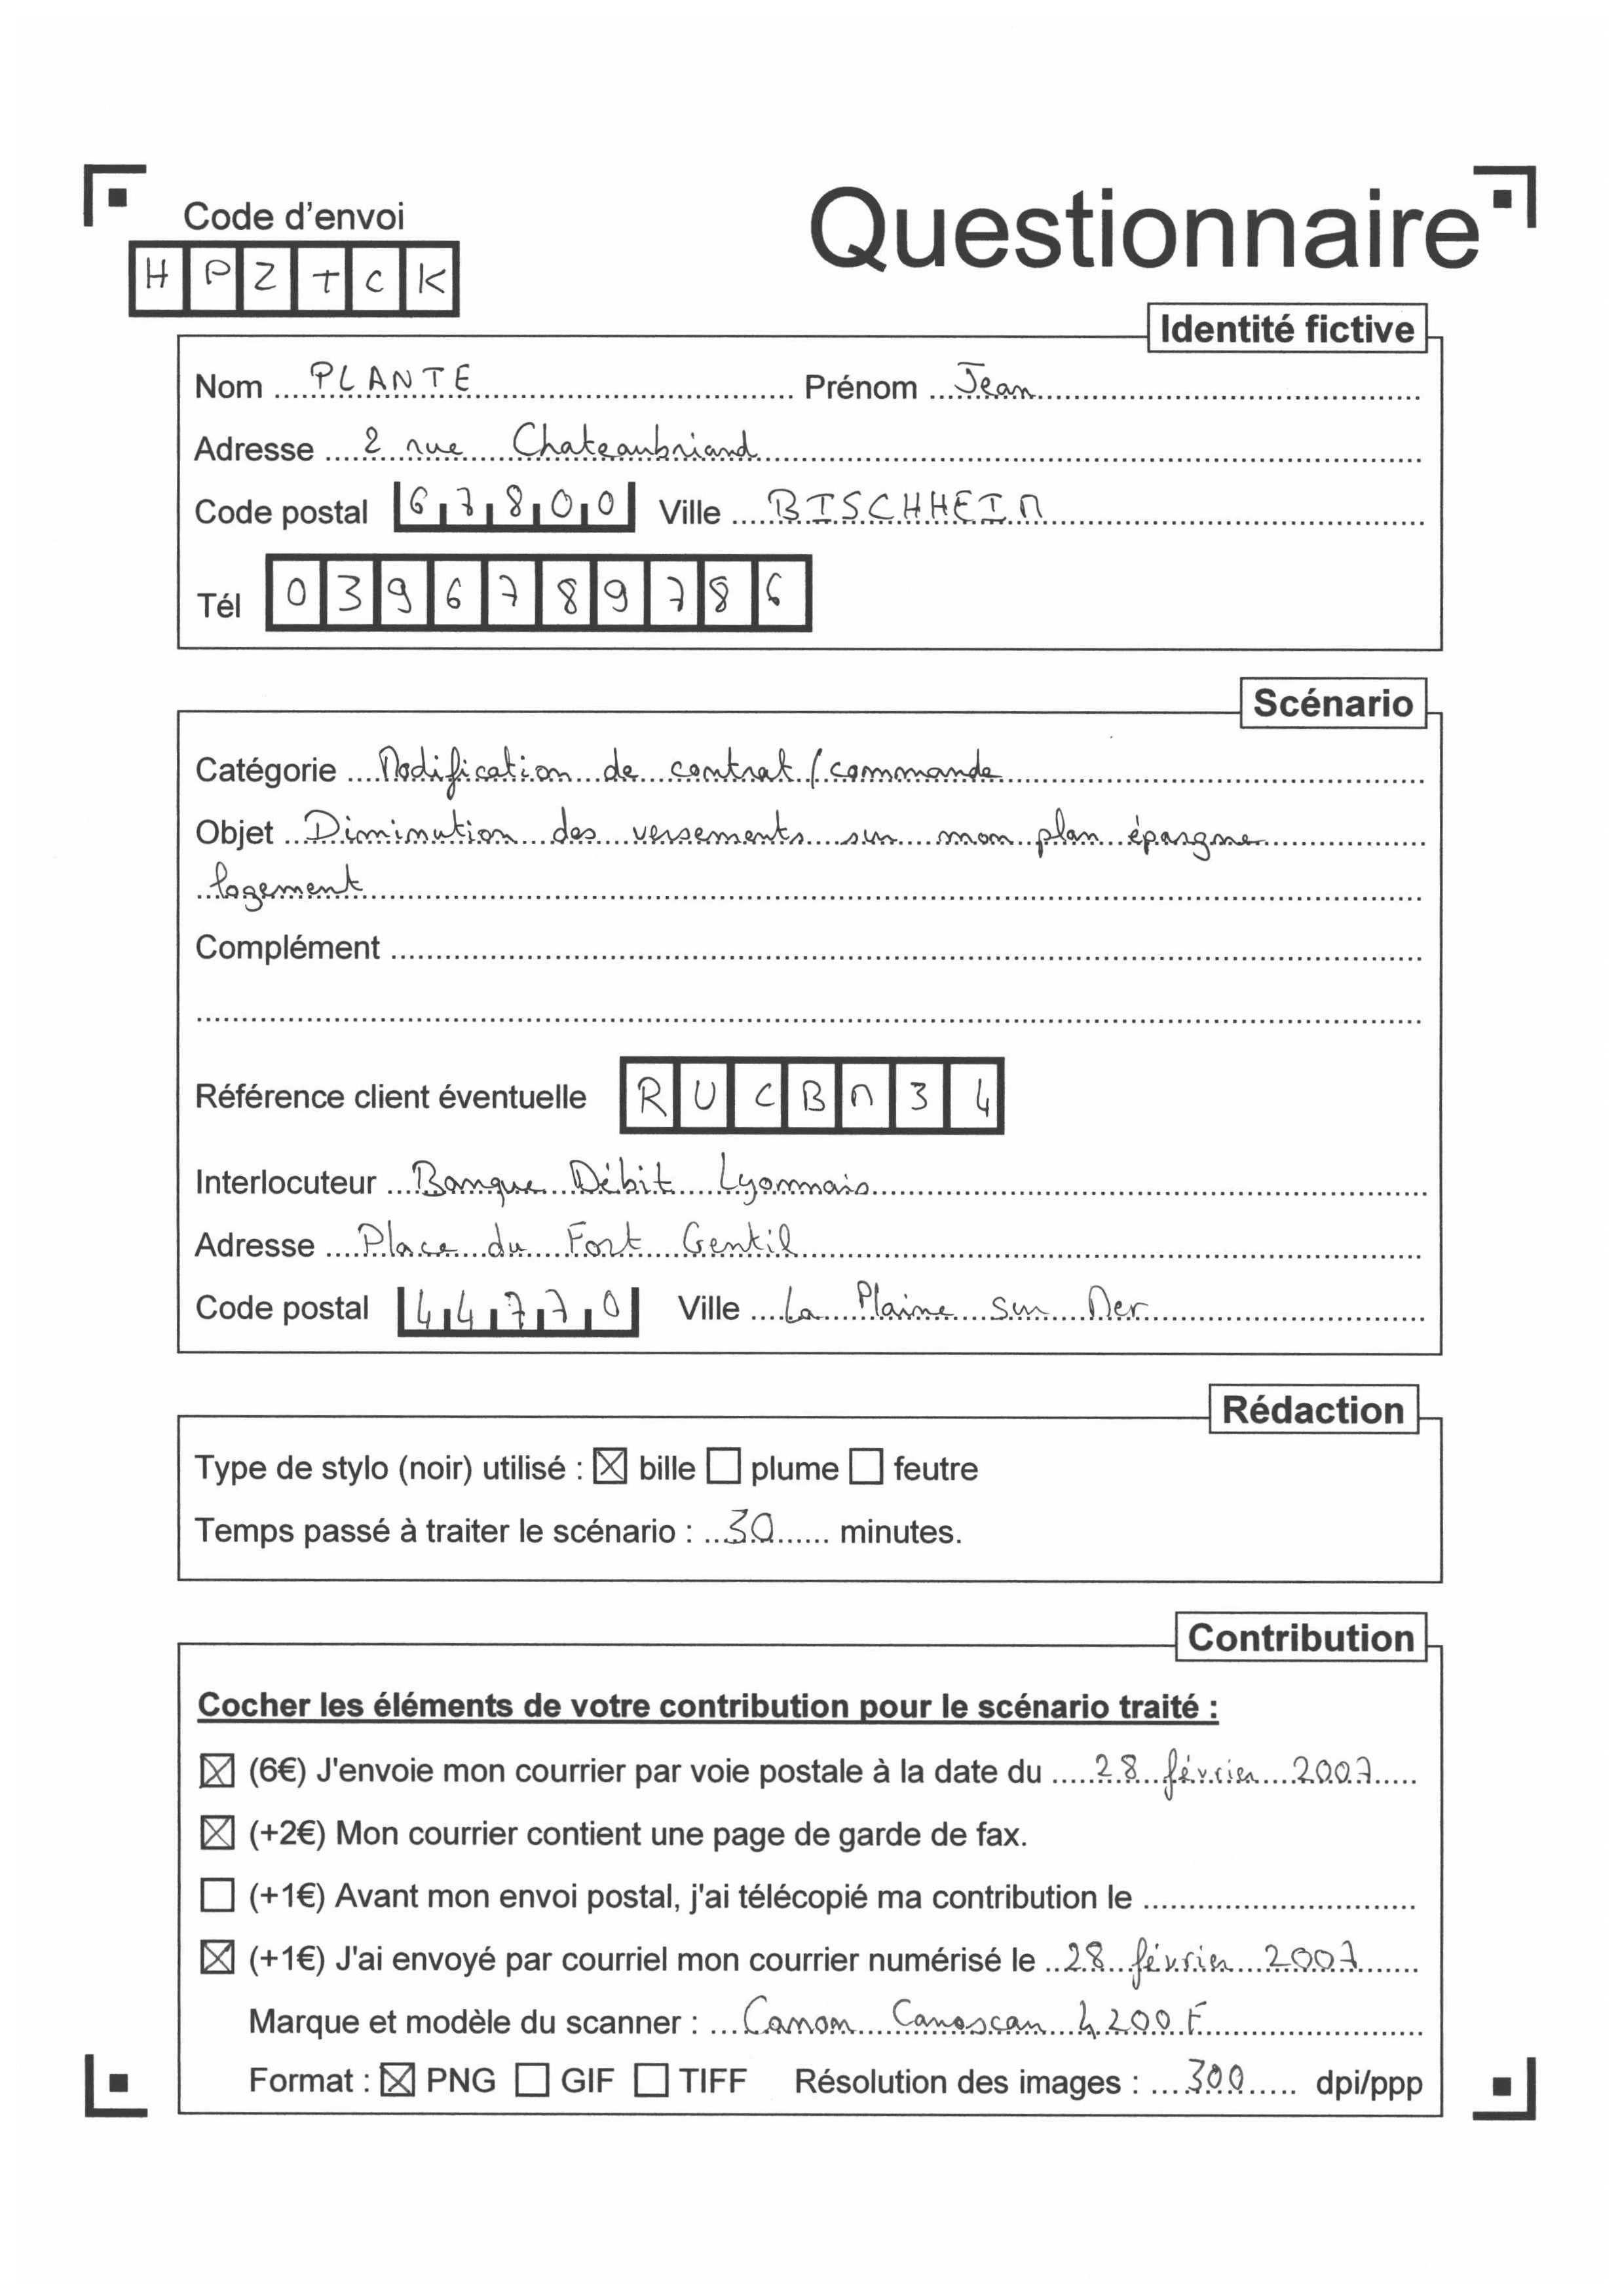 Code d'envoi
Questionnaire
HPZTCK
Identité fictive
Nom PLANTE Prénom Jean
Adresse 2 rue Chateaubriand
Code postal 67800 Ville BISCHHEIM
Tél 0396789786
Scénario
Catégorie Modification de contrat/commande
Objet Diminution des versements sur mon plan épargne
logement
Complément
Référence client éventuelle RUCBM34
Interlocuteur Banque Débit Lyonnais
Adresse Place du Fort Gentil
Code postal 44770 Ville La Plaine sur Mer
Rédaction
Type de stylo (noir) utilisé : ☒ bille ☐ plume ☐ feutre
Temps passé à traiter le scénario : 30 minutes.
Contribution
Cocher les éléments de votre contribution pour le scénario traité :
☒ (6€) J'envoie mon courrier par voie postale à la date du 28 février 2007
☒ (+2€) Mon courrier contient une page de garde de fax.
☐ (+1€) Avant mon envoi postal, j'ai télécopié ma contribution le
☒ (+1€) J'ai envoyé par courriel mon courrier numérisé le 28 février 2007
Marque et modèle du scanner : Canon Canoscan 4200F
Format : ☒ PNG ☐ GIF ☐ TIFF Résolution des images : 300 dpi/ppp